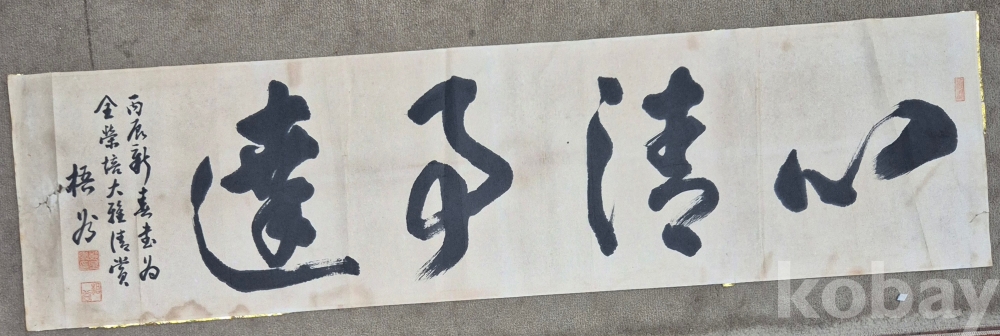 心清事達
丙辰新春書為
金榮培大雅清賞
梧
kobay